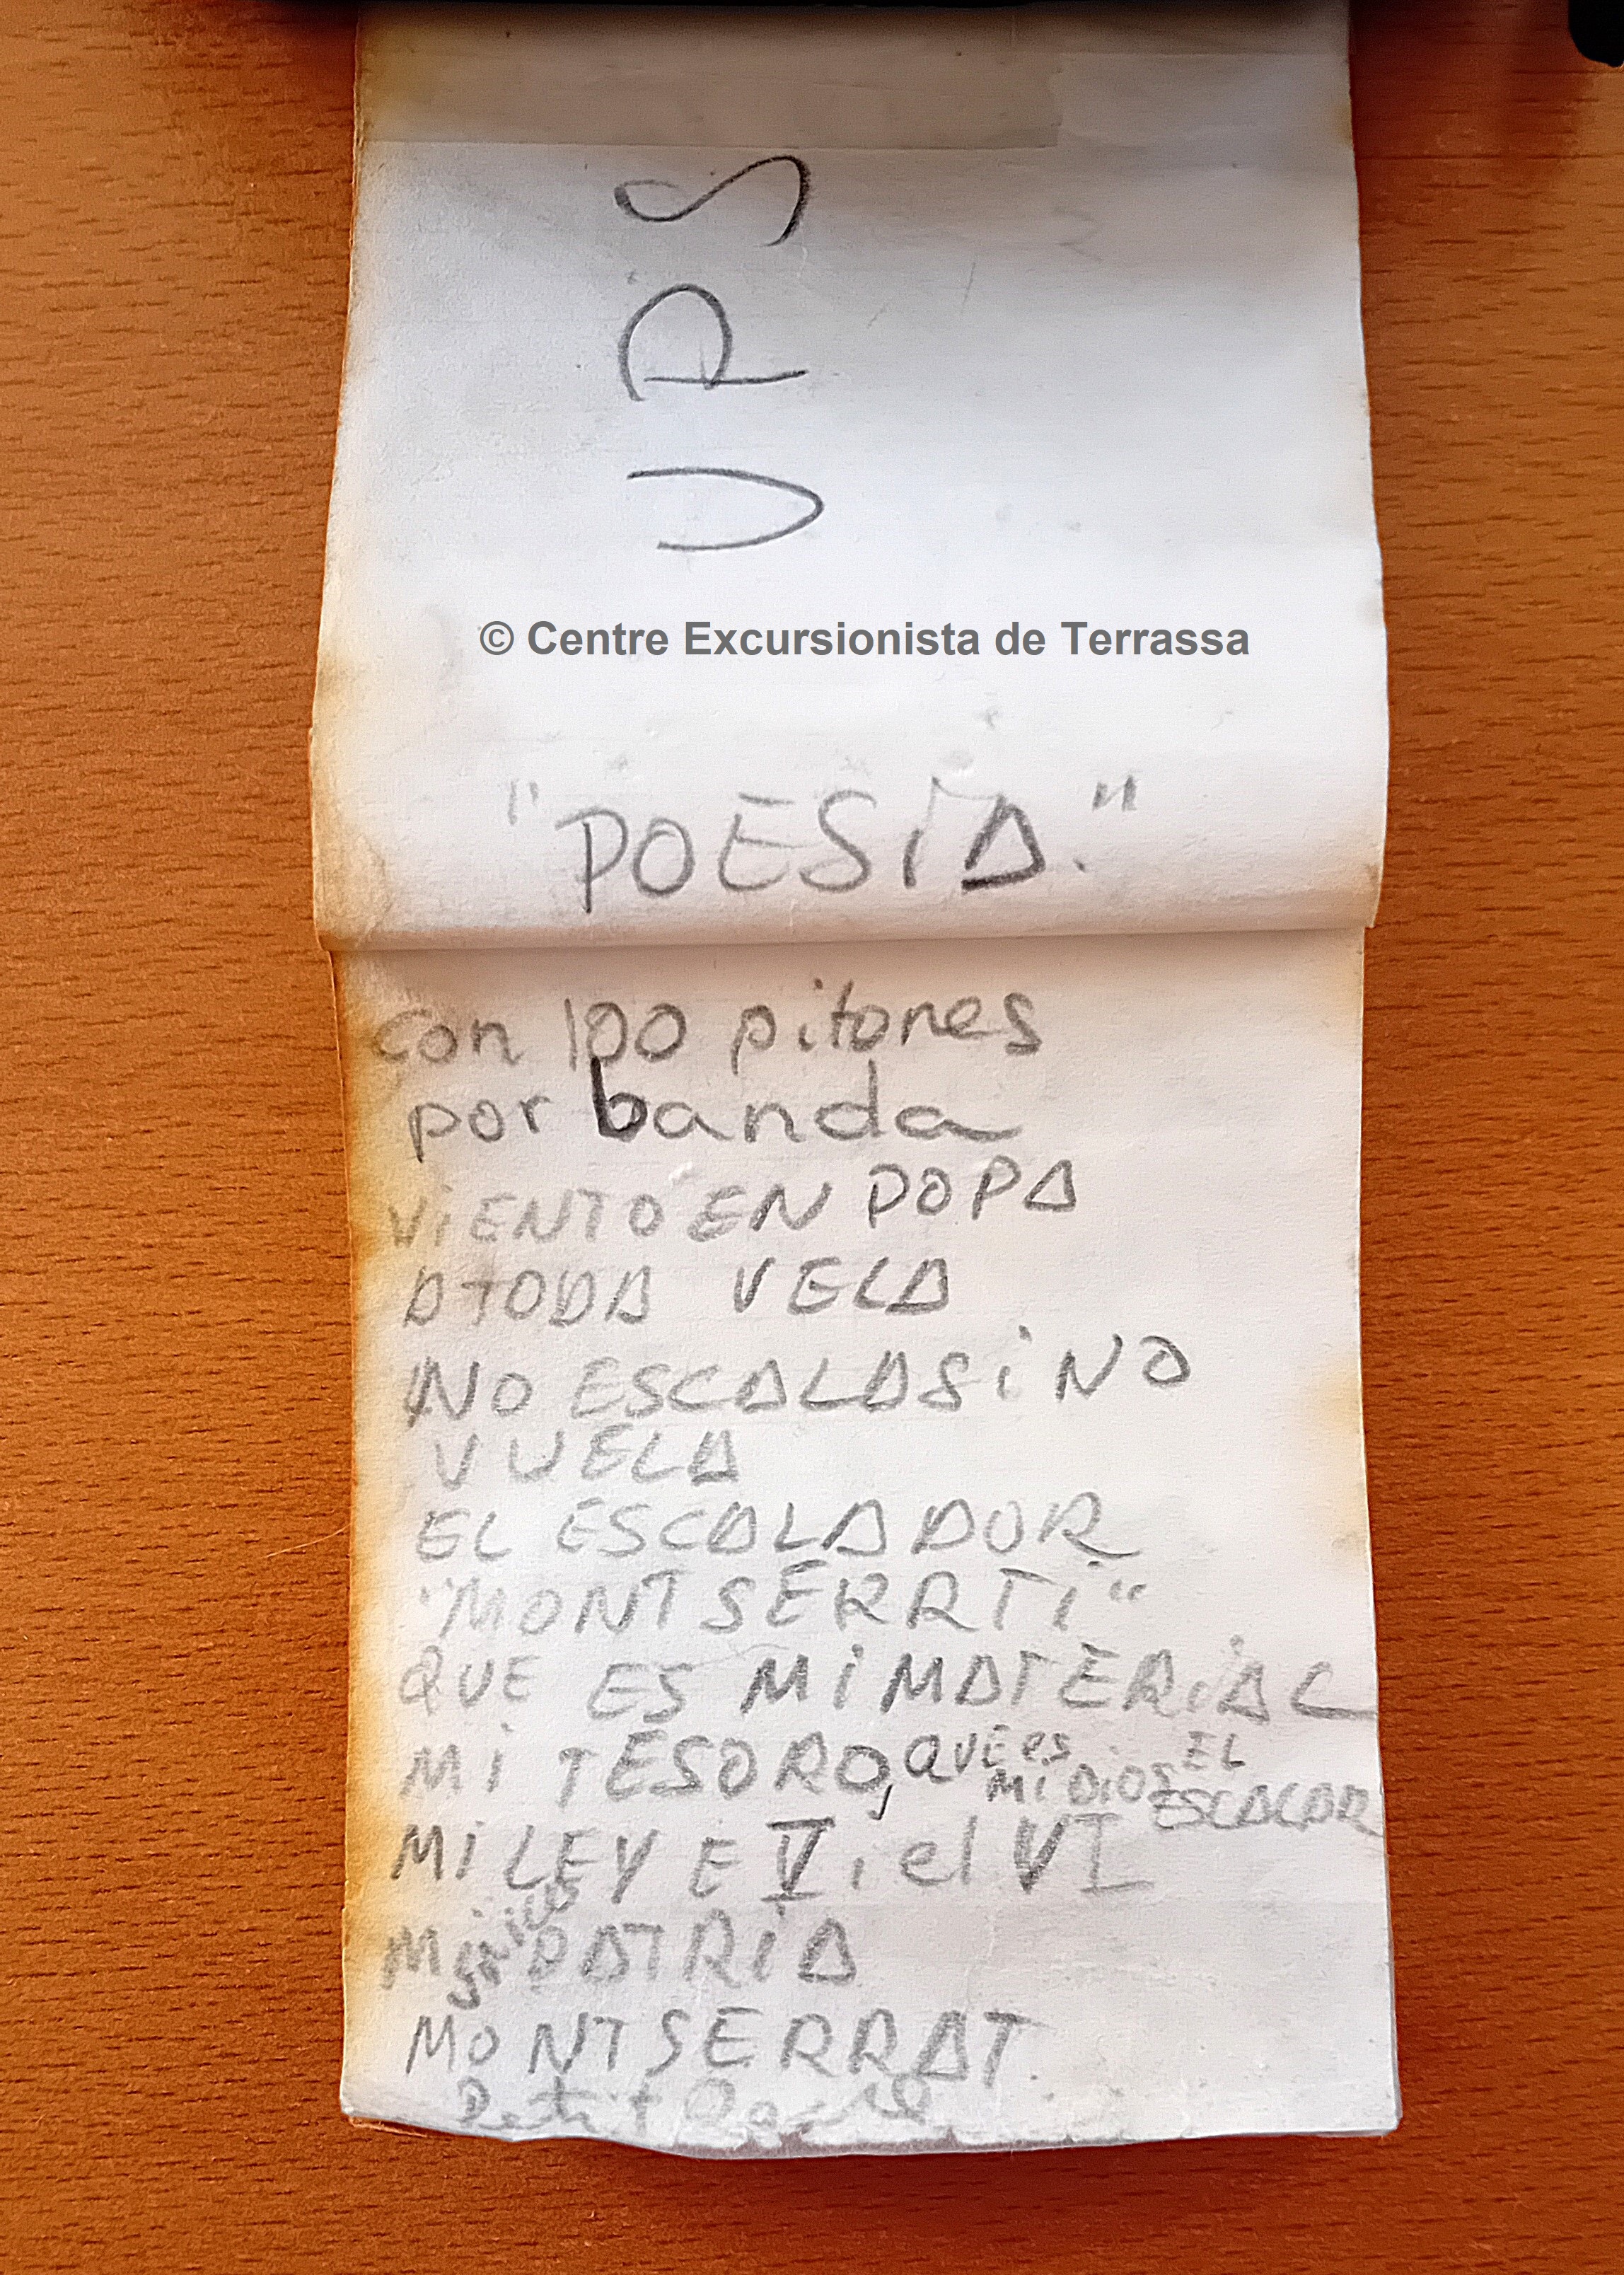 URS
© Centre Excursionista de Terrassa
"POESiA."
con 100 pitones
por banda
ViENTO EN POPA
A TODA VELA
NO ESCALA SiNO
VUELA
EL ESCALADOR
"MONTSERRTi"
QUE ES Mi MATERiAL
Mi TESORO, QUE es Mi DiOS EL ESCALAR
Mi LEY E V i el VI
Mi PATRiA
MONTSERRAT.
Petit